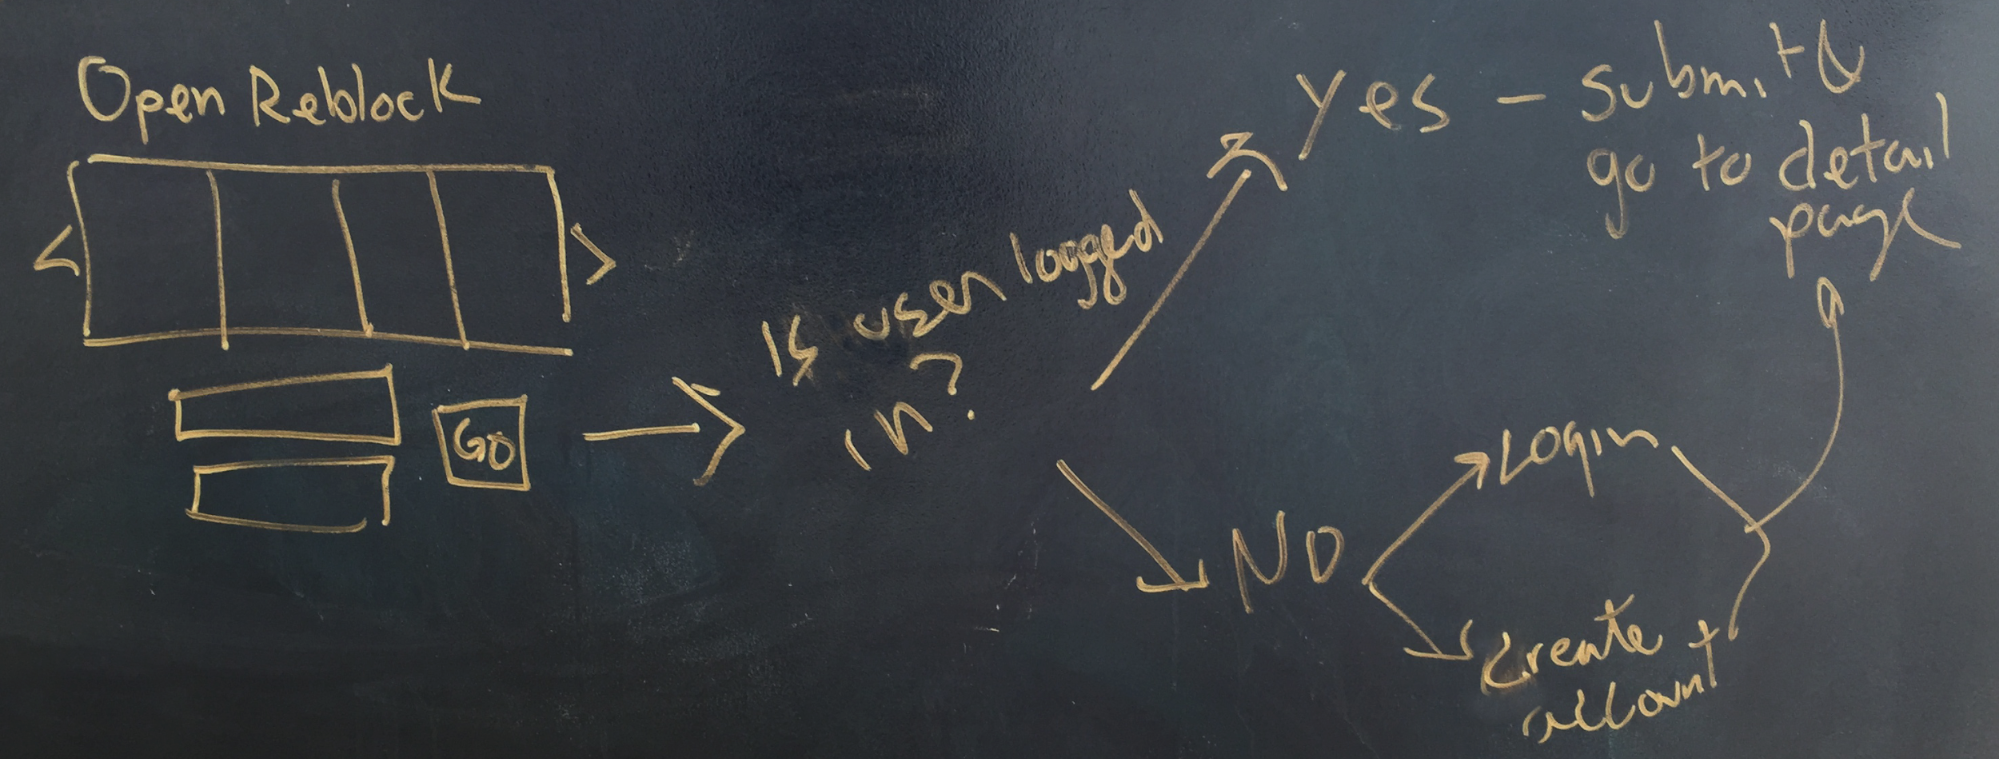 Open Reblock
GO
Is user logged
in?
Yes - submit &
go to detail
page
NO
Login
Create
account